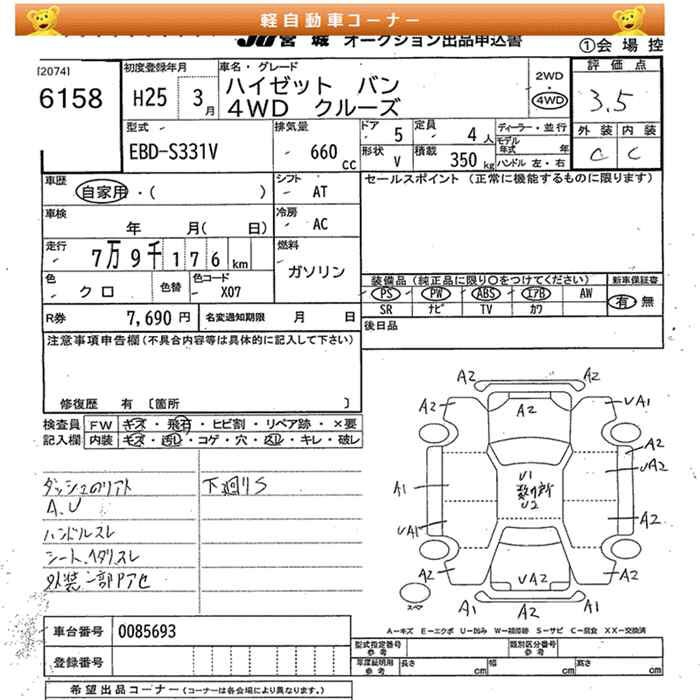 軽自動車コーナー
JU宮城 オークション出品申込書
①会場控
[2074]
6158
初度登録年月
H25 3月
車名・グレード
ハイゼット バン
4WD クルーズ
2WD
・
4WD
評価点
3.5
外装 内装
C C
型式
EBD-S331V
排気量
660 CC
ドア 5
定員 4人
形状 V
積載 350 kg
ディーラー・並行
モデル年式 年
ハンドル 左・右
車歴
自家用・( )
シフト
AT
セールスポイント (正常に機能するものに限ります)
車検
年 月( 日)
冷房
AC
走行
7万9千176 km
燃料
ガソリン
色
クロ
色替
色コード
X07
装備品 (純正品に限り○をつけてください)
新車保証書
PS PW ABS エアB AW
有 無
SR ナビ TV カワ
R券 7,690円
名変通知期限 月 日
後日品
注意事項申告欄(不具合内容等は具体的に記入して下さい)
修復歴 有 〔箇所 〕
検査員記入欄
FW キズ・飛石・ヒビ割・リペア跡・×要
内装 キズ・汚れ・コゲ・穴・スレ・キレ・破レ
下廻りS
A.U
ハンドルスレ
外装一部アセ
A2 A2
A2 A2 UA1
A2
UA2
A1 U1
数ヶ所
U2
UA1 A2
A2 UA2 A2
スペア
A1 A2 A1
A-キズ E-エクボ U-凹み W-補修跡 S-サビ C-腐食 XX-交換済
車台番号 0085693
型式指定番号 参考
類別区分番号 参考
登録番号
年度証明用 参考
長さ cm 幅 cm 高さ cm
希望出品コーナー (コーナーは各会場により異なります。)